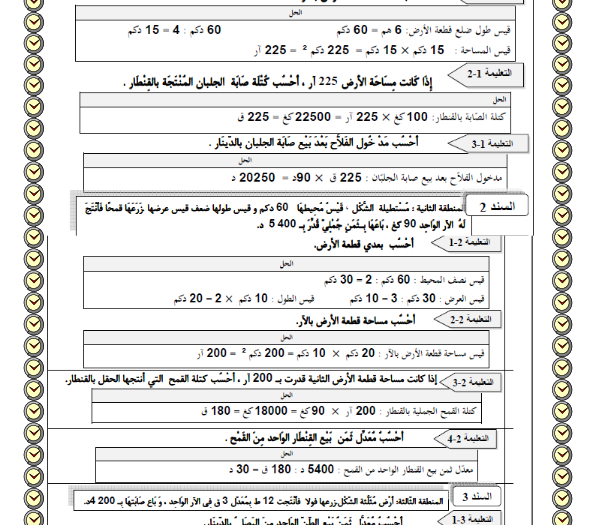 الحل
قيس طول ضلع قطعة الأرض: 6 هم = 60 دكم 60 دكم : 4 = 15 دكم
قيس المساحة : 15 دكم × 15 دكم = 225 دكم ² = 225 آر
التعليمة 1-2
إذا كانت مساحة الأرض 225 آر ، أحْسُب كُتْلة صَابَة الجلبان المُنْتَجَة بالقِنْطار .
الحل
كتلة الصّابة بالقنطار: 100 كغ × 225 آر = 22500 كغ = 225 ق
التعليمة 1-3
أحْسُب مَدْ خُول الفَلاَّح بَعْدَ بَيْع صَابَة الجلبان بالدّينَار .
الحل
مدخول الفلاّح بعد بيع صابة الجلبّان : 225 ق × 90د = 20250 د
السند 2
المنطقة الثانية : مُسْتطيلة الشّكْل ، قَيْسُ مُحِيطِهَا 60 دكم و قيس طولها ضعف قيس عرضها زَرَعَهَا قمحًا فأنْتَجَ
لَهُ الآر الوَاحِد 90 كغ ، بَاعَهَا بِـثَمَنٍ جُمْلِيٍّ قُدِّرَ بِـ 5400 د.
التعليمة 2-1
أحْسُب بعدي قطعة الأرض.
الحل
قيس نصف المحيط : 60 دكم : 2 = 30 دكم
قيس العرض : 30 دكم : 3 – 10 دكم قيس الطول : 10 دكم × 2 – 20 دكم
التعليمة 2-2
أحْسُب مساحة قطعة الأرض بالآر.
الحل
قيس مساحة قطعة الأرض بالآر : 20 دكم × 10 دكم = 200 دكم ² = 200 آر
التعليمة 2-3
إذا كانت مساحة قطعة الأرض الثانية قدرت بـ 200 آر ، أحْسُب كتلة القمح التي أنتجها الحقل بالقنطار.
الحل
كتلة القمح الجملية بالقنطار : 200 آر × 90 كغ = 18000 كغ = 180 ق
التعليمة 2-4
أحْسُبْ مُعَدَّل ثَمَن بَيْع القِنْطَار الوَاحد مِنَ القَمْح .
الحل
معدّل ثمن بيع القنطار الواحد من القمح : 5400 د : 180 ق – 30 د
السند 3
المنطقة الثالثة: أرْض مُثَلَّثَة الشّكْل زرعها فولا فأنْتجت 12 ط بِمُعَدّل 3 ق في الآر الواحد ، وَ بَاع صَابَتَهَا بِـ 4200د.
التعليمة 3-1
أحْسُبْ مُعَدَّل ثَمَن بَيْع الطنّ الوَاحد مِنَ